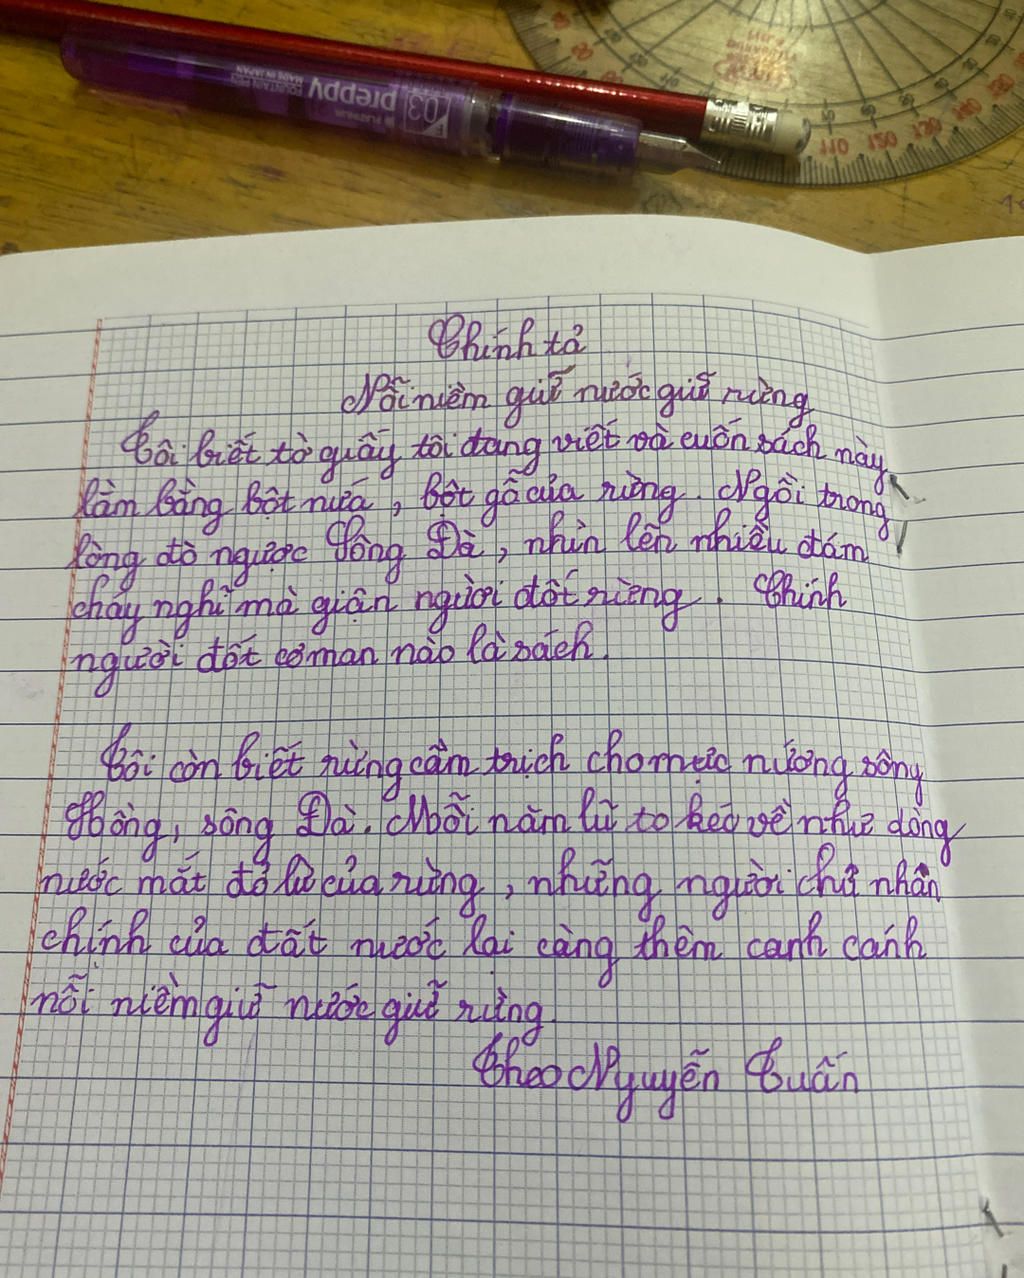 preppy
03
PLATINUM
MADE IN JAPAN
110
120
130
140
Chính tả
Nỗi niềm giữ nước giữ rừng
Tôi biết tờ giấy tôi đang viết và cuốn sách này
làm bằng bột nứa, bột gỗ của rừng. Ngồi trong
lòng đò ngược Sông Đà, nhìn lên nhiều đám
cháy nghĩ mà giận người đốt rừng. Chính
người đốt cơ man nào là sách.
Tôi còn biết rừng cầm trịch cho mực nương sông
Hồng, sông Đà. Mỗi năm lũ to kéo về như dòng
nước mắt đỏ lừ của rừng, những người chủ nhân
chính của đất nước lại càng thêm canh cánh
nỗi niềm giữ nước giữ rừng.
Theo Nguyễn Tuấn